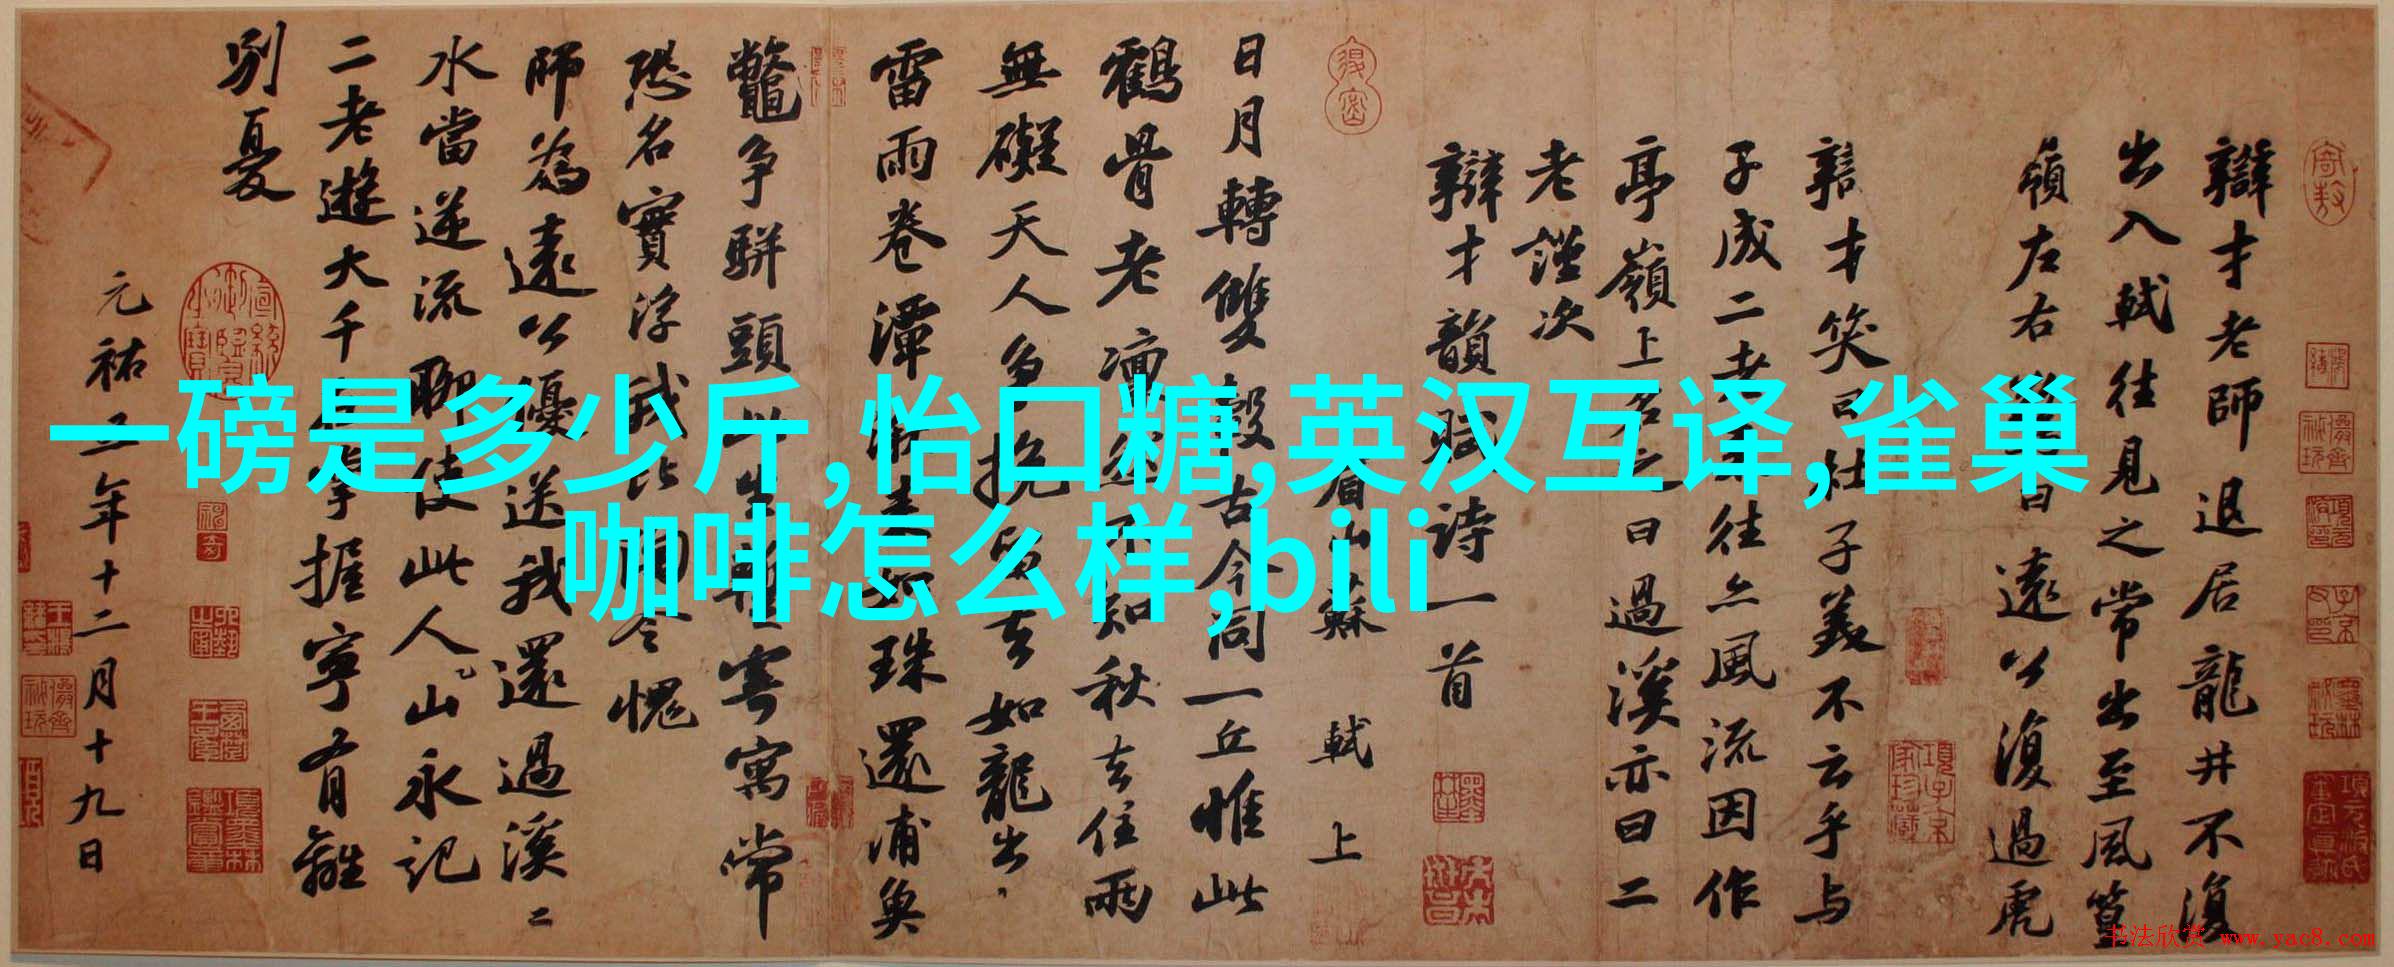 辯才老師退居龍井不復
出入軾往見之常出至風篁
嶺左右驚曰遠公復過虎
辯才笑曰杜子美不云乎与
子成二老來往亦風流因作
亭嶺上名之曰過溪亦曰二
老謹次
辯才韻賦詩一首
眉山蘇 軾 上
日月轉雙轂古今同一丘惟此
鶴骨老凜然不知秋去住兩
無礙天人爭挽留去如龍出
雷雨卷潭湫來如珠還浦魚
鼈爭駢頭此生暫寄寓常
恐名實浮我比陶令愧
師為遠公優送我還過溪二
水當逆流聊使此人山永記
二老遊大千在掌握寧有離
別憂
元祐五年十二月十九日
一磅是多少斤,怡口糖,英汉互译,雀巢
咖啡怎么样,bili
书法欣赏 www.yac8.com